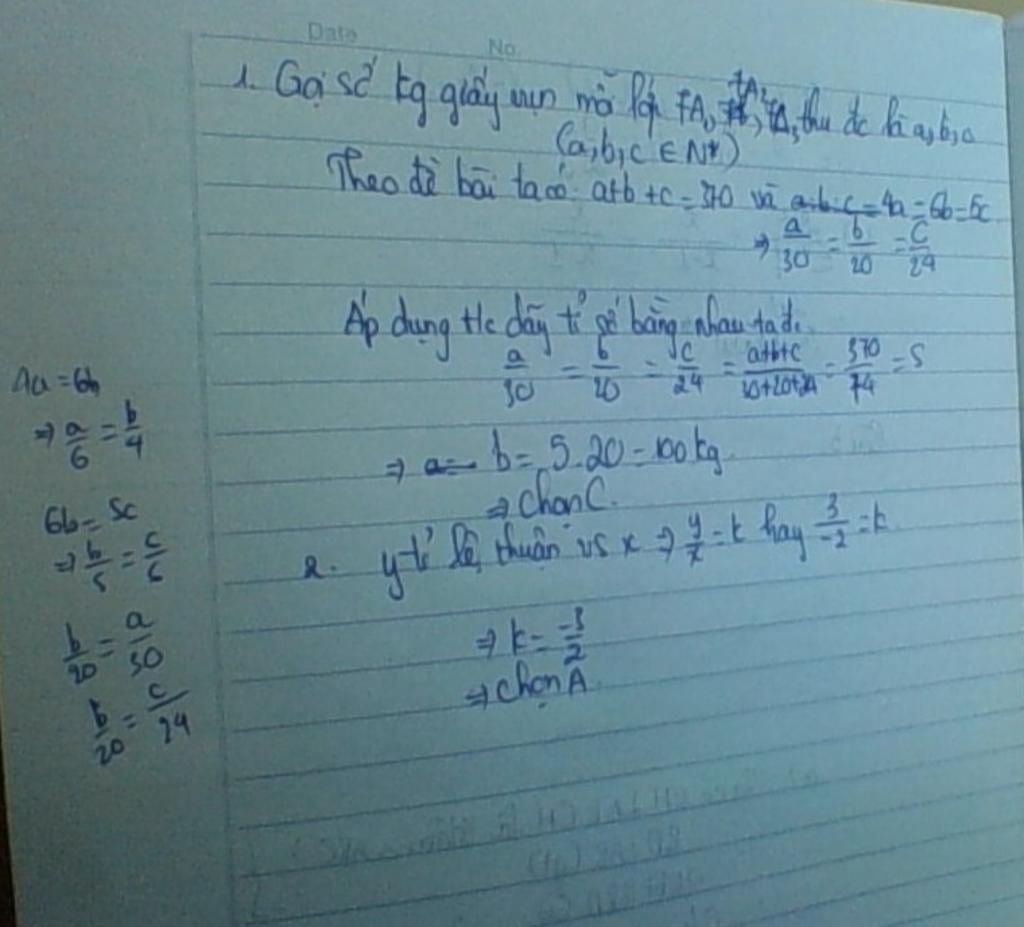 Date No.
1. Gọi số kg giấy vụn mỗi lớp 7A, 7A2, 7A3 thu đc là a, b, c
(a, b, c ∈ N*)
Theo đề bài ta có: a+b+c=370 và 4a=6b=5c
⇒ a/30 = b/20 = c/24
Áp dụng t/c dãy tỉ số bằng nhau ta đ.
a/30 = b/20 = c/24 = a+b+c/30+20+24 = 370/74 = 5
⇒ b = 5.20 = 100kg
⇒ chọn C.
2. y tỉ lệ thuận vs x ⇒ y/x = k hay 3/-2 = k
⇒ k = -3/2
⇒ chọn A.
4a = 6b
⇒ a/6 = b/4
6b = 5c
⇒ b/5 = c/6
b/20 = a/30
b/20 = c/24